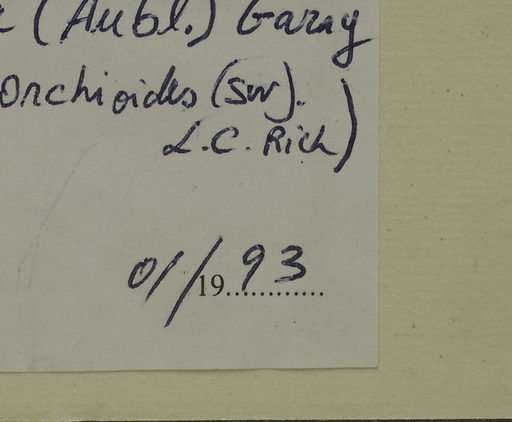 (Aubl.) Garay
orchioides (Sw).
L.C. Rich)
01/1993